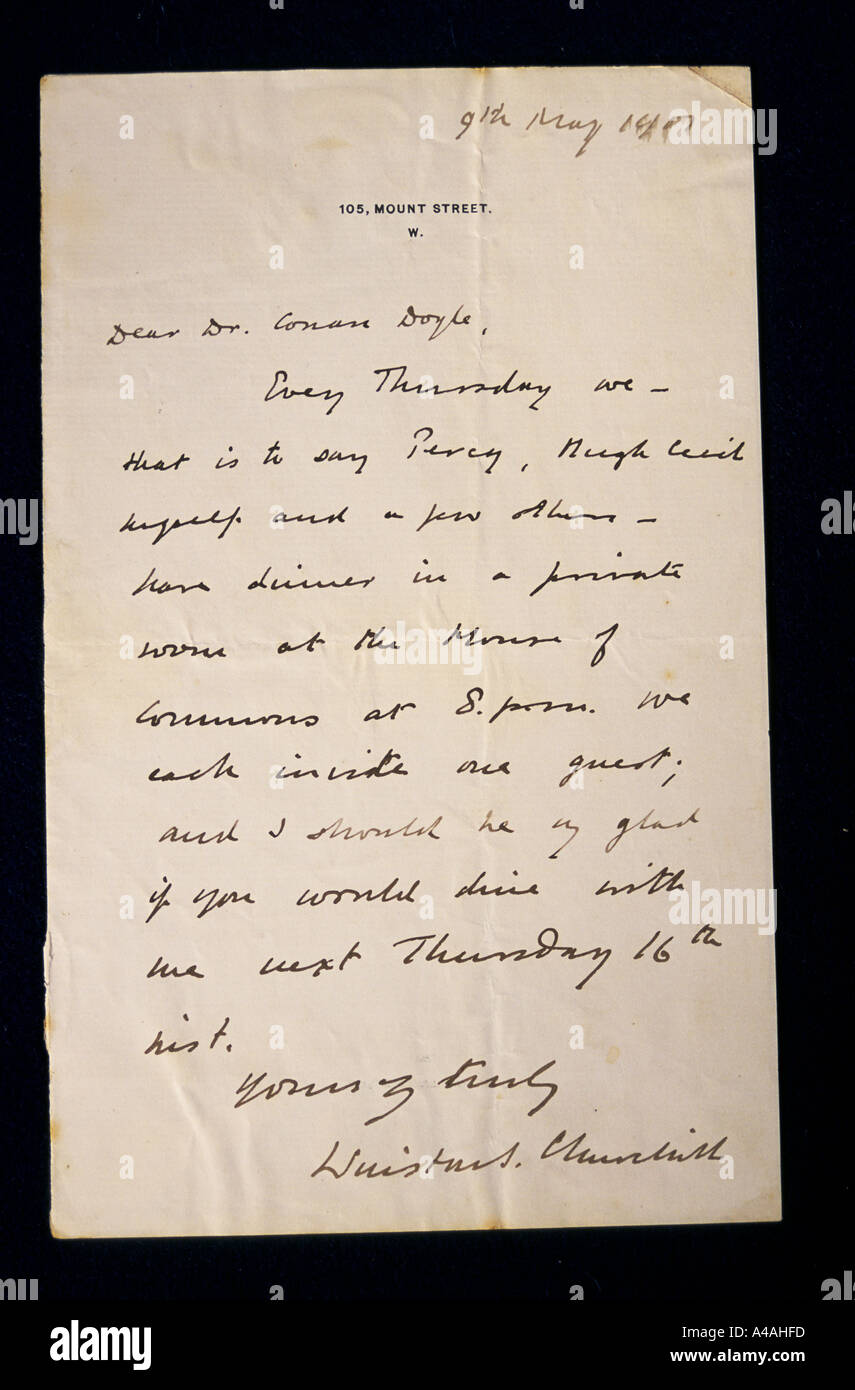 9th May
105, MOUNT STREET.
W.
Dear Dr. Conan Doyle,
Every Thursday we –
that is to say Percy, Hugh Cecil
myself and a few others –
have dinner in a private
room at the House of
Commons at 8.p.m. We
each invite one guest;
and I should be vy glad
if you would dine with
me next Thursday 16th
inst.
Yours vy truly
Winston S. Churchill
alamy
alamy
alamy
alamy
alamy
alamy
alamy
Image ID: A4AHFD
www.alamy.com